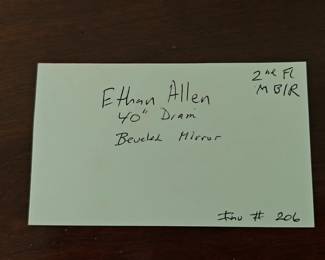 2nd Fl
M B/R
Ethan Allen
40" Diam
Beveled Mirror
Inv # 206